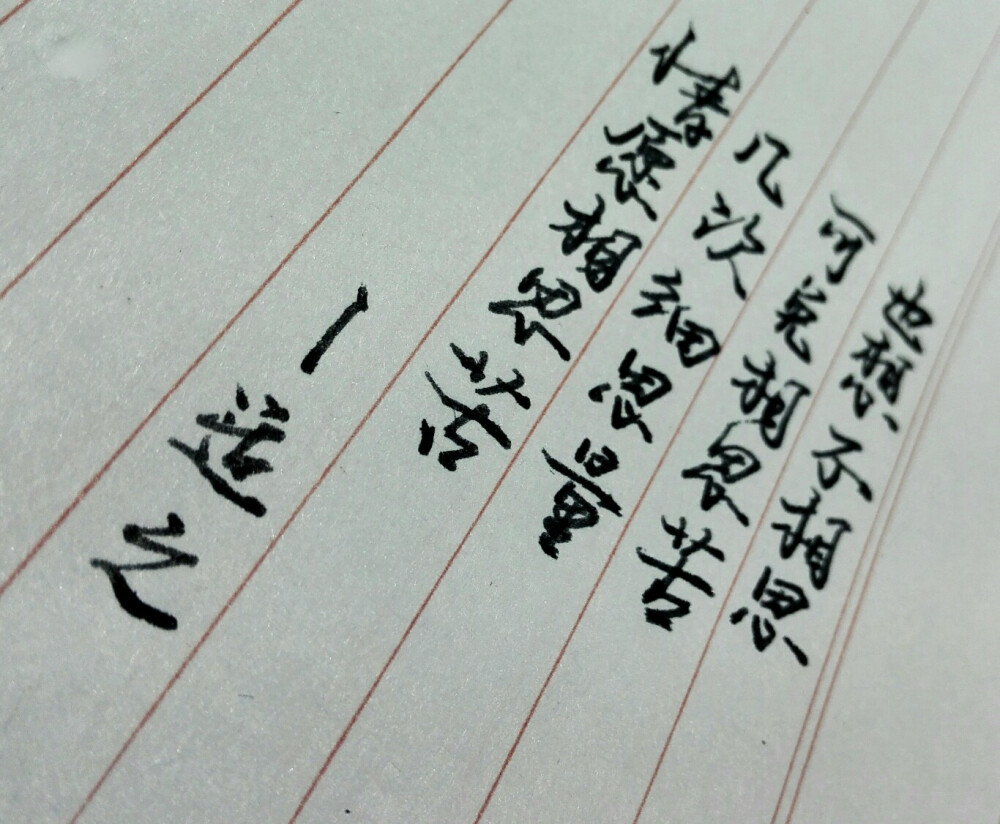 也想不相思
可免相思苦
几次细思量
情愿相思苦
—适之